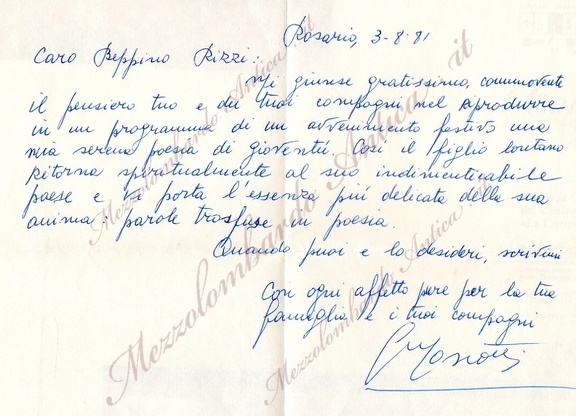 Rosario, 3-8-81
Caro Beppino Rizzi:
Mi giunse gratissimo, commovente
il pensiero tuo e dei tuoi compagni nel riprodurre
in un programma di un avvenimento festivo una
mia serena poesia di gioventù. Così il figlio lontano
ritorna spiritualmente al suo indimenticabile
paese e vi porta l'essenza più delicata della sua
anima: parole trasfuse in poesia.
Quando puoi e lo desideri, scrivimi
Con ogni affetto pure per la tua
famiglia e i tuoi compagni
Mezzolombardo Antica.it
Mezzolombardo Antica.it
Mezzolombardo Antica.it